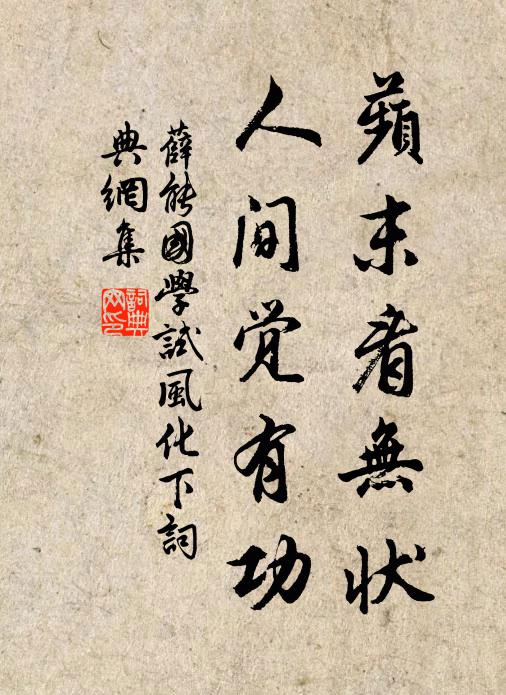 蘋末看無状
人间觉有功
薛能國學試風化下詞
典網集
詞典网印